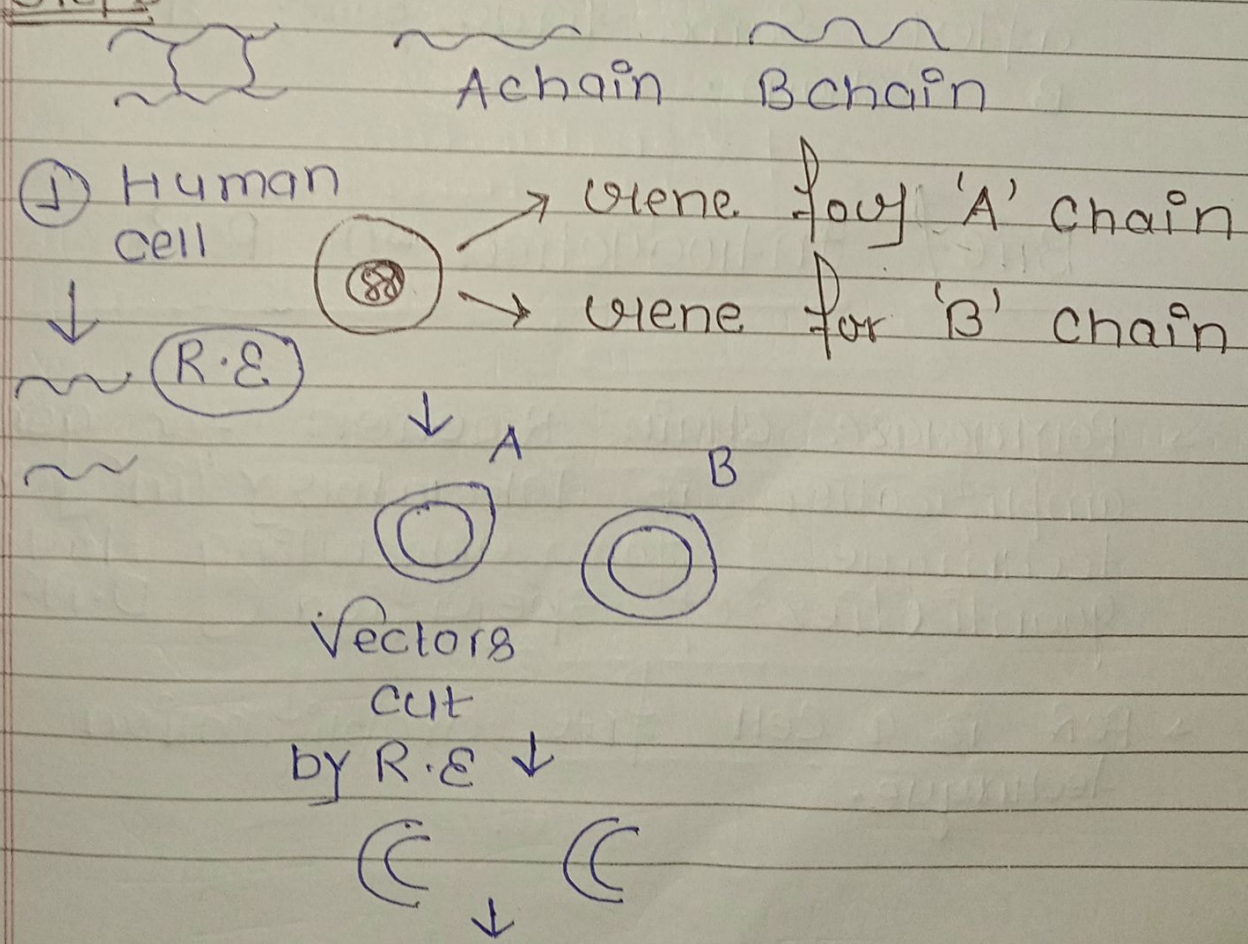 A chain B chain
① Human cell
Gene for 'A' chain
Gene for 'B' chain
R.E
A
B
Vectors
cut
by R.E